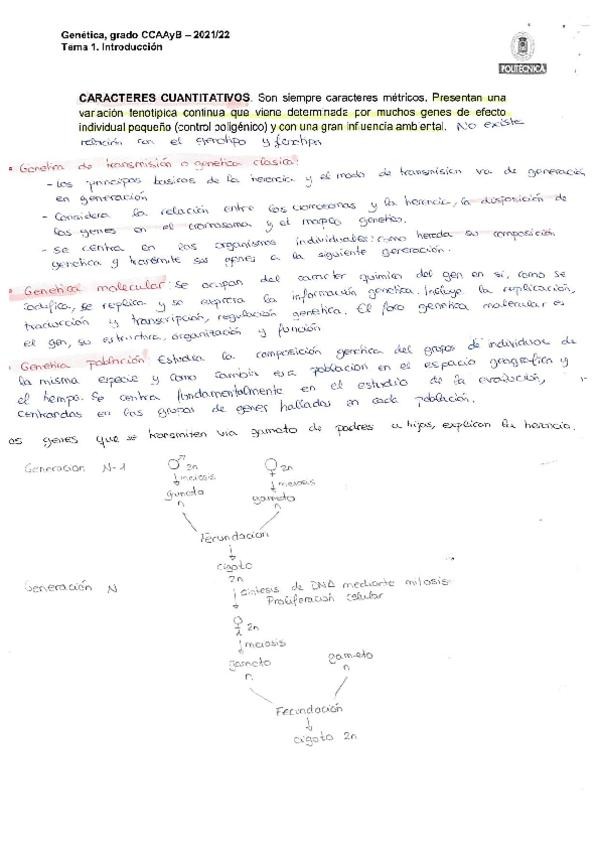 Genética, grado CCAAyB – 2021/22
Tema 1. Introducción
POLITÉCNICA
CARACTERES CUANTITATIVOS. Son siempre caracteres métricos. Presentan una
variación fenotípica continua que viene determinada por muchos genes de efecto
individual pequeño (control poligénico) y con una gran influencia ambiental. No existe
relación con el genotipo y fenotipo
• Genetica de transmisión o genetica clasica:
- Los principios basicos de la herencia y el modo de transmision va de generación
en generación
- Considera la relación entre los cromosomas y la herencia, la disposición de
los genes en el cromosoma y el mapeo genetico.
- Se centra en los organismos individuales: como hereda su composición
genetica y transmite sus genes a la siguiente generación.
• Genetica molecular: se ocupan del caracter quimico del gen en si, como se
codifica, se replica y se expresa la información genetica. Incluye la replicación,
traducción y transcripción, regulación genetica. El foro genetica molecular es
el gen, su estructura, organización y función
• Genetica población: Estudia la composición genetica del grupos de individuos de
la misma especie y como cambia esa población en el espacio geografica y
el tiempo. Se centra fundamentalmente en el estudio de la evolución,
centrandos en los grupos de genes hallados en cada población.
os genes que se transmiten via gameto de padres a hijos, explican la herencia.
Generacion N-1 ♂ 2n ♀ 2n
↓ meiosis ↓ meiosis
gameto gameto
n n
Fecundacion
↓
cigoto
2n
Generación N ↓ síntesis de DNA mediante mitosis
Proliferación celular
2n
↓ meiosis
gameto gameto
n n
Fecundación
↓
cigoto 2n